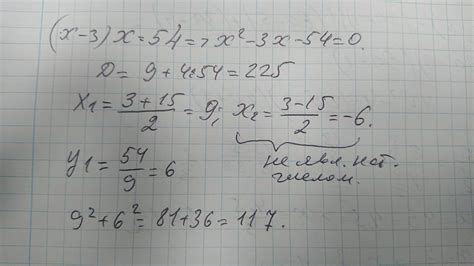 (x-3)x=54 => x²-3x-54=0.
D= 9+4·54=225
x₁=(3+15)/2=9; x₂=(3-15)/2=-6.
не явл. нат.
числом.
y₁=54/9=6
9²+6²=81+36=117.